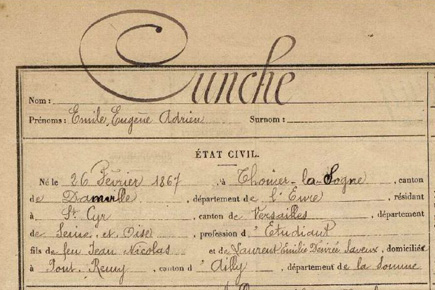 Cunche
Nom :
Prénoms : Emile Eugène Adrien Surnom :
ÉTAT CIVIL.
Né le 26 Février 1867, à Thomer-la-Sogne, canton
de Damville, département de l'Eure, résidant
à St Cyr, canton de Versailles, département
de Seine et Oise, profession d'Etudiant
fils de feu Jean Nicolas et de Laurent Emilie Désirée Saveux, domiciliée
à Pont Remy, canton d'Ailly, département de la Somme